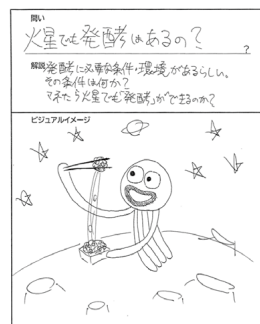 問い
火星でも発酵はあるの?
?
解説
発酵に必要な条件・環境があるらしい。
その条件は何か?
マネたら火星でも「発酵」ができるのか?
ビジュアルイメージ